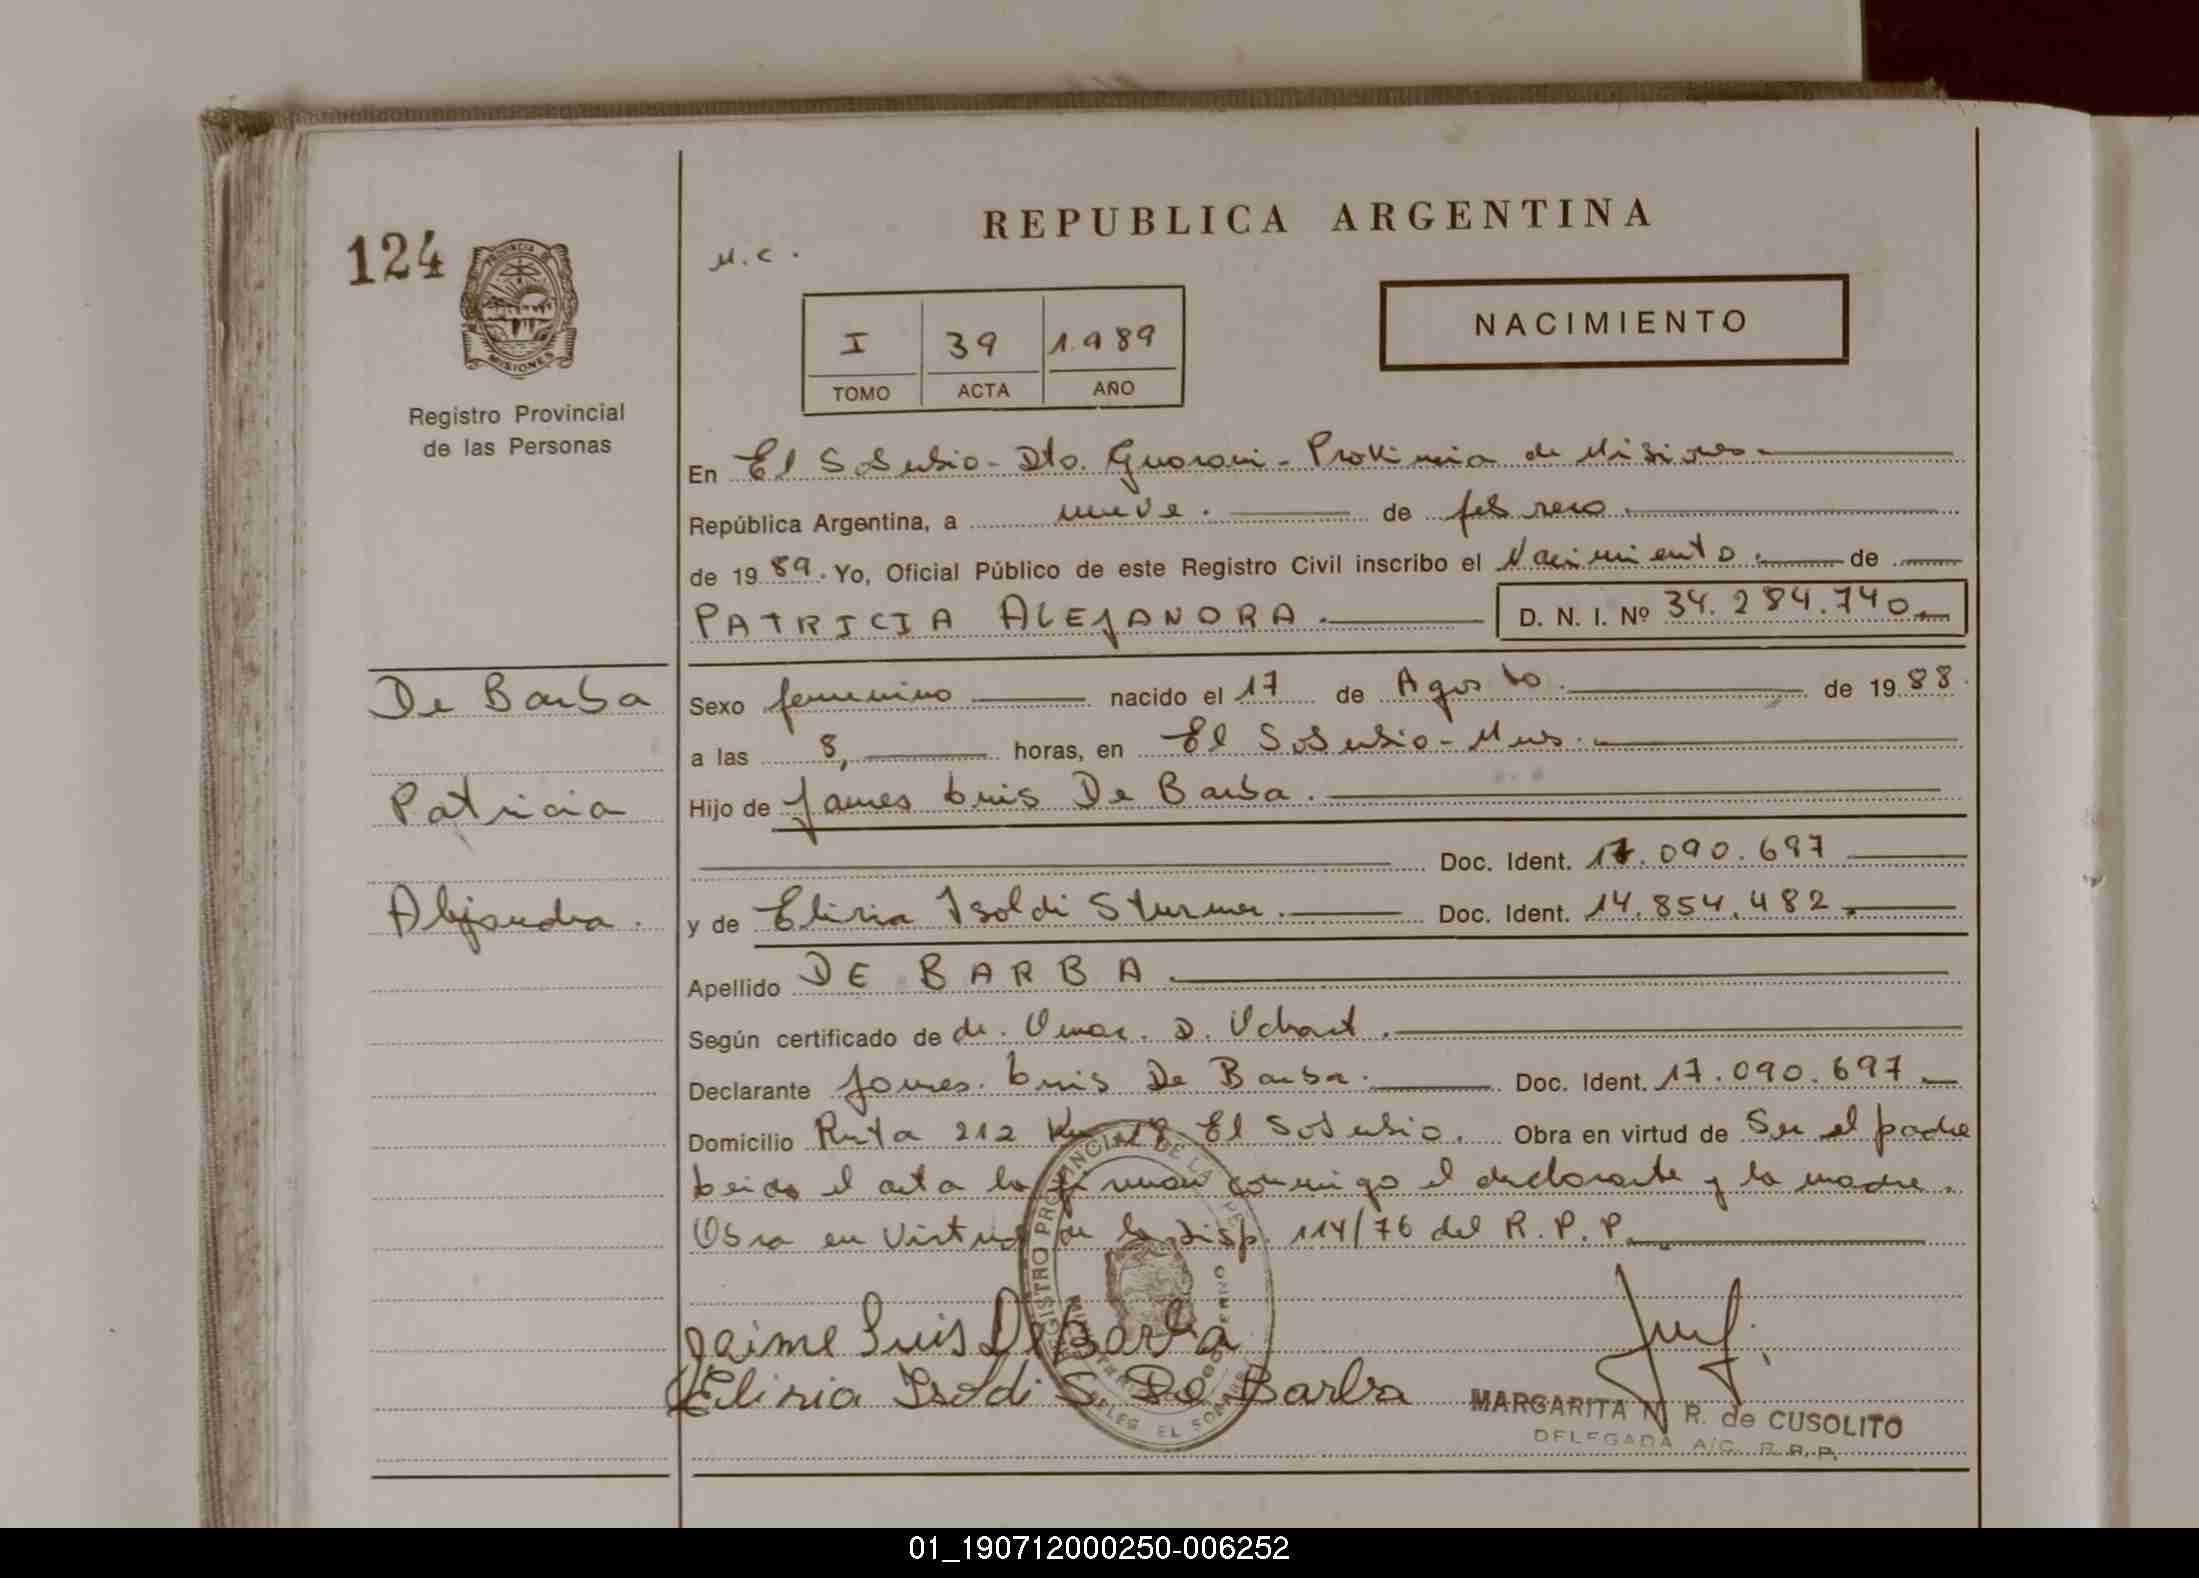 REPUBLICA ARGENTINA
124
PROVINCIA DE
MISIONES
Registro Provincial
de las Personas
I 39 1.989
TOMO ACTA AÑO
NACIMIENTO
En El Soberbio - Dto. Guarani - Provincia de Misiones.
República Argentina, a nueve. de febrero.
de 19 89. Yo, Oficial Público de este Registro Civil inscribo el Nacimiento. de
PATRICIA ALEJANDRA. D. N. I. Nº 34.284.740
De Barba
Patricia
Alejandra.
Sexo femenino nacido el 17 de Agosto. de 19 88
a las 8, horas, en El Soberbio - Mnes.
Hijo de James Luis De Barba.
Doc. Ident. 17.090.697
y de Eliria Isoldi Sturmer. Doc. Ident. 14.854.482.
Apellido DE BARBA
Según certificado de de. Omar. D.
Declarante James. Luis De Barba. Doc. Ident. 17.090.697
Domicilio Ruta 212 Km 18 El Soberbio. Obra en virtud de Ser el padre
Leida el acta la firman conmigo el declarante y la madre.
Obra en virtud de la Disp. 114/76 del R. P. P.
Jaime Luis De Barba
Eliria Isoldi S. De Barba
REGISTRO PROVINCIAL DE LAS PE
DELEG EL SOBERBIO
MARGARITA N. R. de CUSOLITO
DELEGADA A/C. R.R.P.
01_190712000250-006252